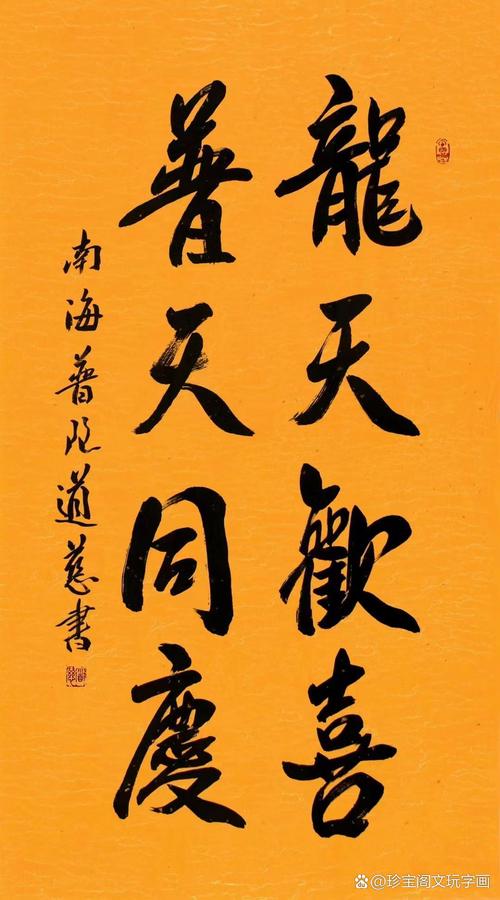 龍天歡喜
普天同慶
南海普陀道慈書
@珍宝阁文玩字画